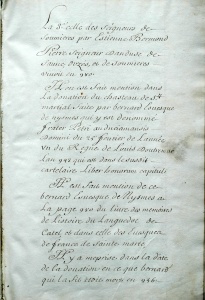 La 3e celle des Seigneurs de
Sommieres par Estienne Bermond
Pierre Seigneur Danduse de
Sauve et de Sommieres
vivoit en
Il en est fait mention dans
la donation du chasteau de St
martial faite par bernard Evesque
de nysmes qui y est denommé
frater Petri andusianensis
Donnée du 25 fevrier de l'année
du Regne de Louis Doutremer
l'an qui est dans le susdit
cartulaire Liber honorum capituli
Il est fait mention de ce
bernard Evesque de Nysmes a
La page du livre des memoires
de l'histoire du Languedoc de
Catel, et dans celle des Evesques
de france de Sainte marte
Il y a meprise dans la date
de la donation en ce que bernard
qui la fit etoit mort en 986.